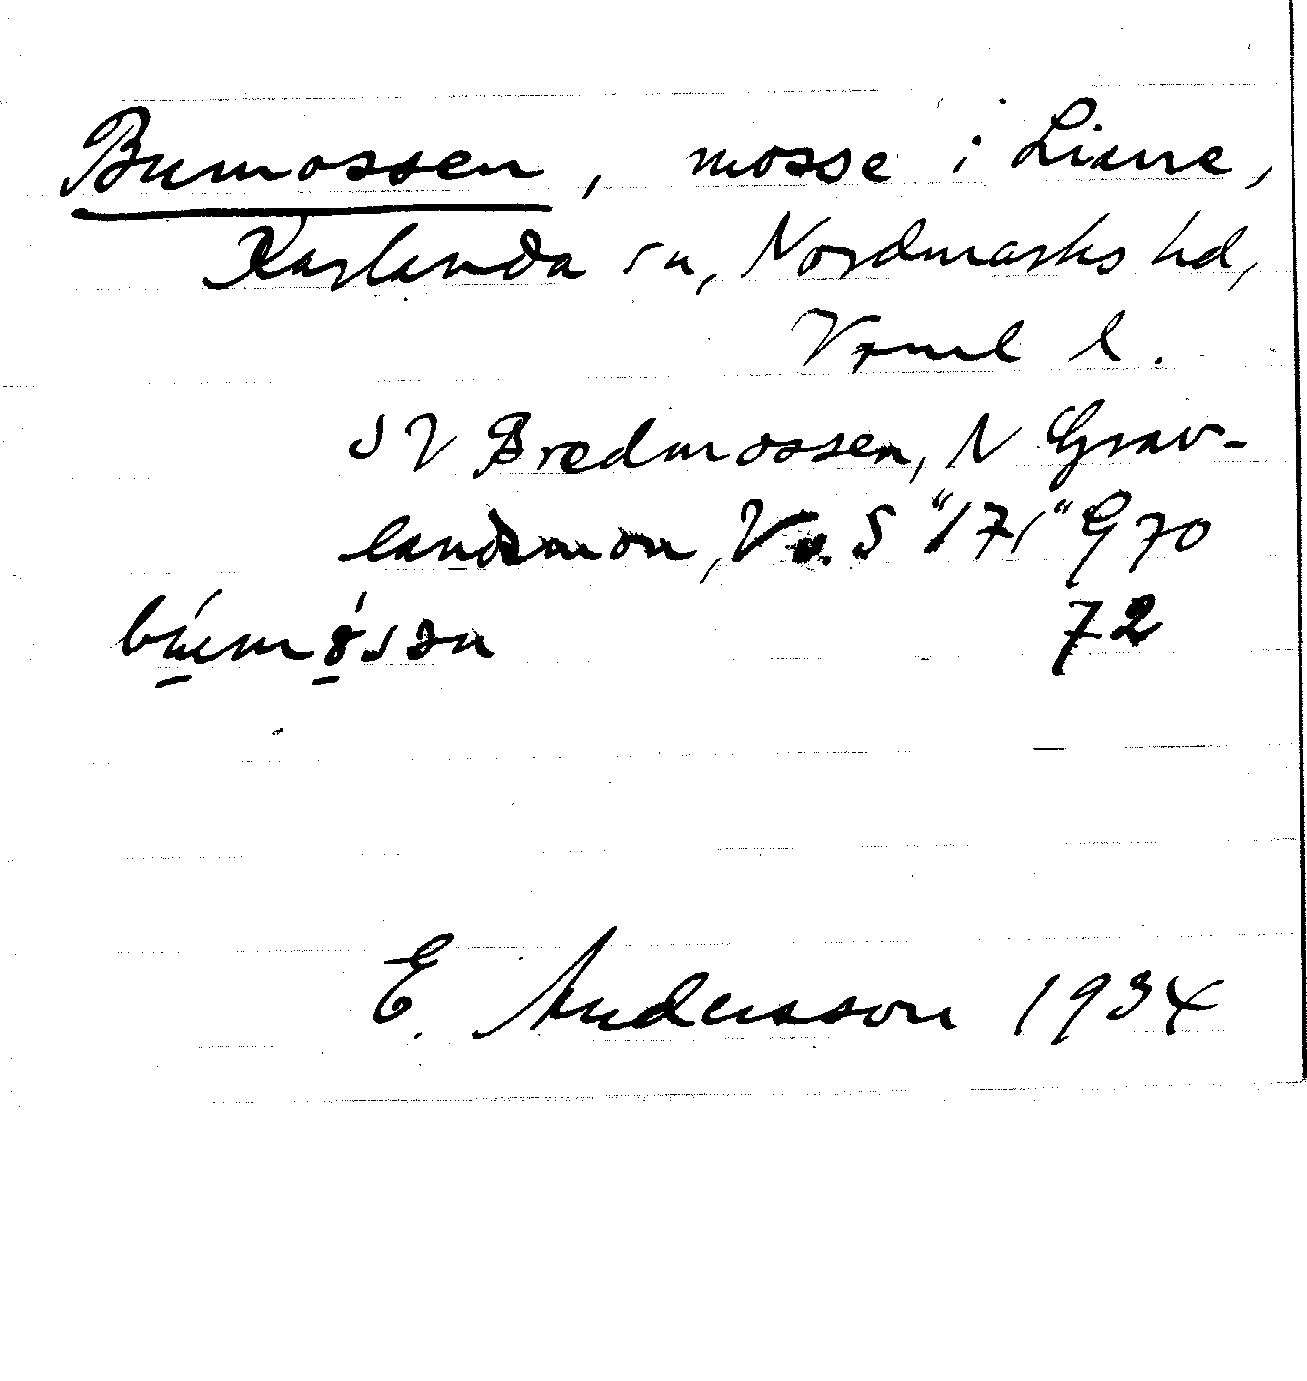 Bumossen, mosse i Liane,
Karlanda sn, Nordmarks hd,
Vrml l.
SV Bredmossen, N Grav-
landsmon, V o. S "171" G 70
72
E. Andersson 1934